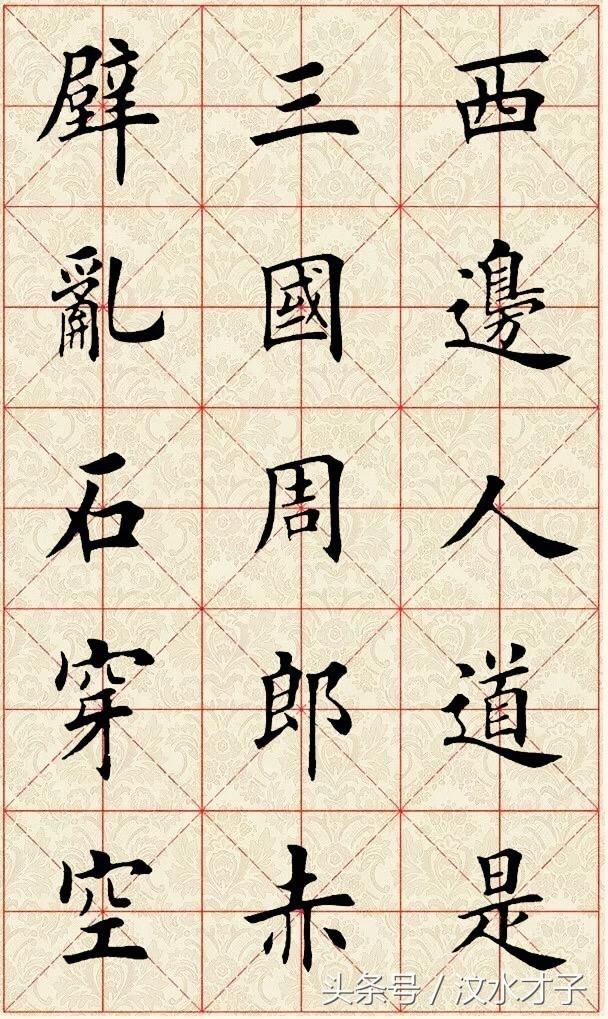 西邊人道是
三國周郎赤
壁亂石穿空
头条号 / 汶水才子